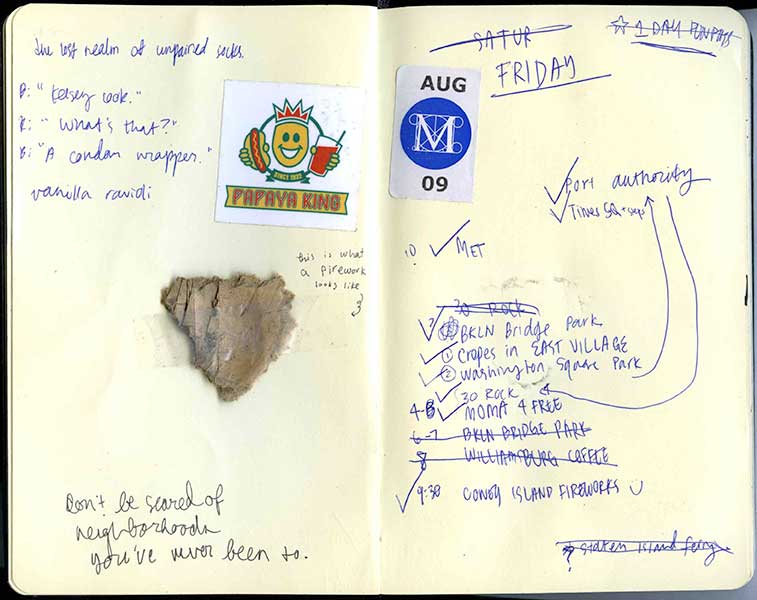 The lost realm of unpaired socks.
B: "Kelsey look."
K: "What's that?"
B: "A condom wrapper."
vanilla ravidi
SINCE 1932
PAPAYA KING
this is what
a firework
looks like
Don't be scared of
neighborhoods
you've never been to.
SATUR
FRIDAY
☆ 1 DAY FUNPASS
AUG
M
09
Port authority
Times SQ
10 MET
30 ROCK
BKLN Bridge Park
① Crepes in EAST VILLAGE
② Washington Square Park
30 ROCK
MOMA 4 FREE
6-7 BKLN BRIDGE PARK
8 WILLIAMSBURG COFFEE
9:30 CONEY ISLAND FIREWORKS
? Staten Island ferry